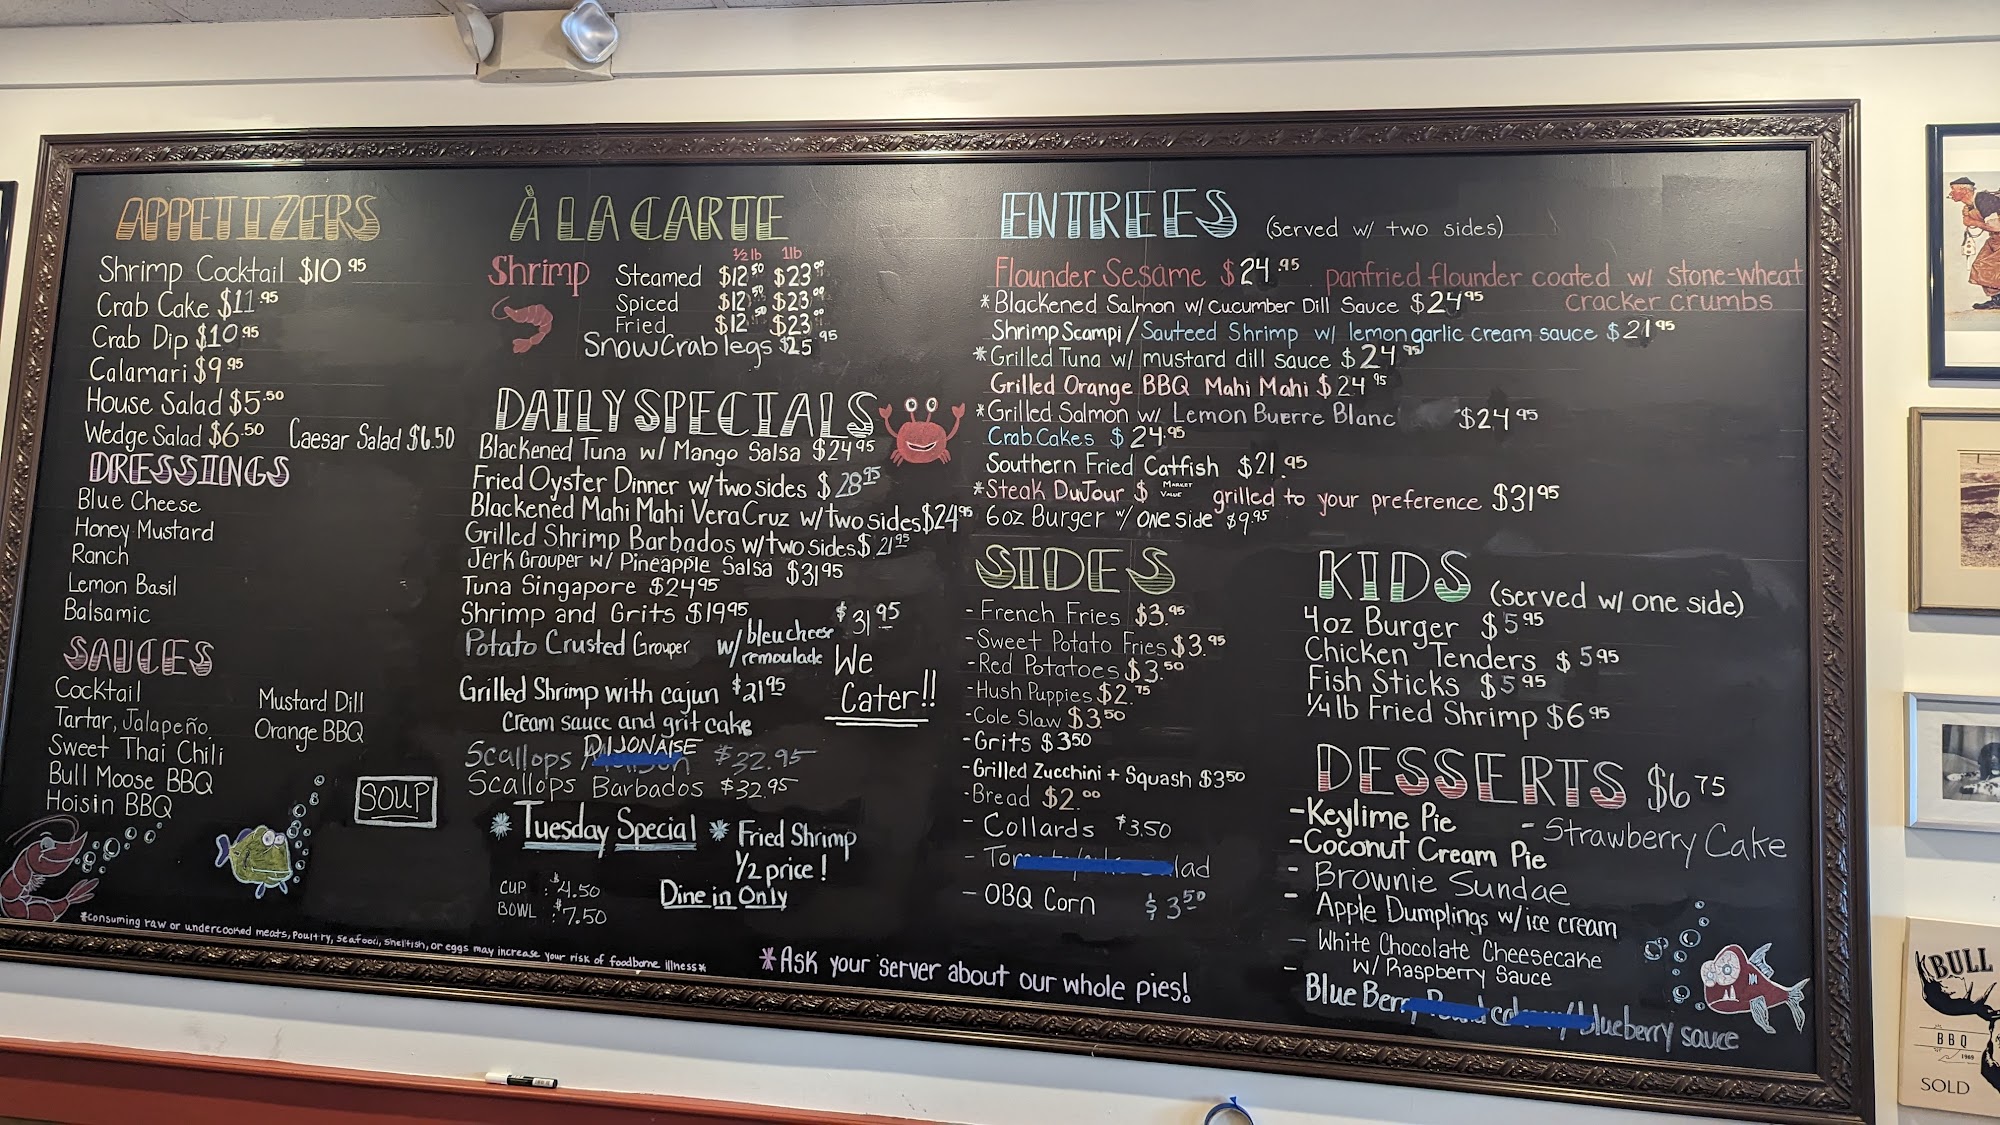 APPETIZERS
Shrimp Cocktail $10.95
Crab Cake $11.95
Crab Dip $10.95
Calamari $9.95
House Salad $5.50
Wedge Salad $6.50 Caesar Salad $6.50
DRESSINGS
Blue Cheese
Honey Mustard
Ranch
Lemon Basil
Balsamic
SAUCES
Cocktail
Tartar, Jalapeño
Sweet Thai Chili
Bull Moose BBQ
Hoisin BBQ
Mustard Dill
Orange BBQ
SOUP
CUP : $4.50
BOWL : $7.50
À LA CARTE
1/2 lb 1lb
Shrimp Steamed $12.50 $23.00
Spiced $12.50 $23.00
Fried $12.50 $23.00
Snow Crab legs $25.95
DAILY SPECIALS
Blackened Tuna w/ Mango Salsa $24.95
Fried Oyster Dinner w/ two sides $28.95
Blackened Mahi Mahi Vera Cruz w/ two sides $24.95
Grilled Shrimp Barbados w/ two sides $21.95
Jerk Grouper w/ Pineapple Salsa $31.95
Tuna Singapore $24.95
Shrimp and Grits $19.95
Potato Crusted Grouper w/ bleu cheese remoulade $31.95
Grilled Shrimp with cajun $21.95
cream sauce and grit cake
Scallops DIJONAISE $32.95
Scallops Barbados $32.95
We
Cater!!
* Tuesday Special * Fried Shrimp
1/2 price!
Dine in Only
ENTREES (served w/ two sides)
Flounder Sesame $24.95 panfried flounder coated w/ stone-wheat
cracker crumbs
*Blackened Salmon w/ Cucumber Dill Sauce $24.95
Shrimp Scampi/Sauteed Shrimp w/ lemon garlic cream sauce $21.95
*Grilled Tuna w/ mustard dill sauce $24.95
Grilled Orange BBQ Mahi Mahi $24.95
*Grilled Salmon w/ Lemon Buerre Blanc $24.95
Crab Cakes $24.95
Southern Fried Catfish $21.95
*Steak DuJour $ MARKET VALUE grilled to your preference $31.95
6oz Burger w/ one side $9.95
SIDES
- French Fries $3.95
- Sweet Potato Fries $3.95
- Red Potatoes $3.50
- Hush Puppies $2.75
- Cole Slaw $3.50
- Grits $3.50
- Grilled Zucchini + Squash $3.50
- Bread $2.00
- Collards $3.50
- OBQ Corn $3.50
KIDS (served w/ one side)
4oz Burger $5.95
Chicken Tenders $5.95
Fish Sticks $5.95
1/4 lb Fried Shrimp $6.95
DESSERTS $6.75
- Keylime Pie
- Strawberry Cake
- Coconut Cream Pie
- Brownie Sundae
- Apple Dumplings w/ ice cream
- White Chocolate Cheesecake
w/ Raspberry Sauce
- Blue Berry blueberry sauce
*consuming raw or undercooked meats, poultry, seafood, shellfish, or eggs may increase your risk of foodborne illness*
*Ask your server about our whole pies!
BULL
BBQ
1969
SOLD